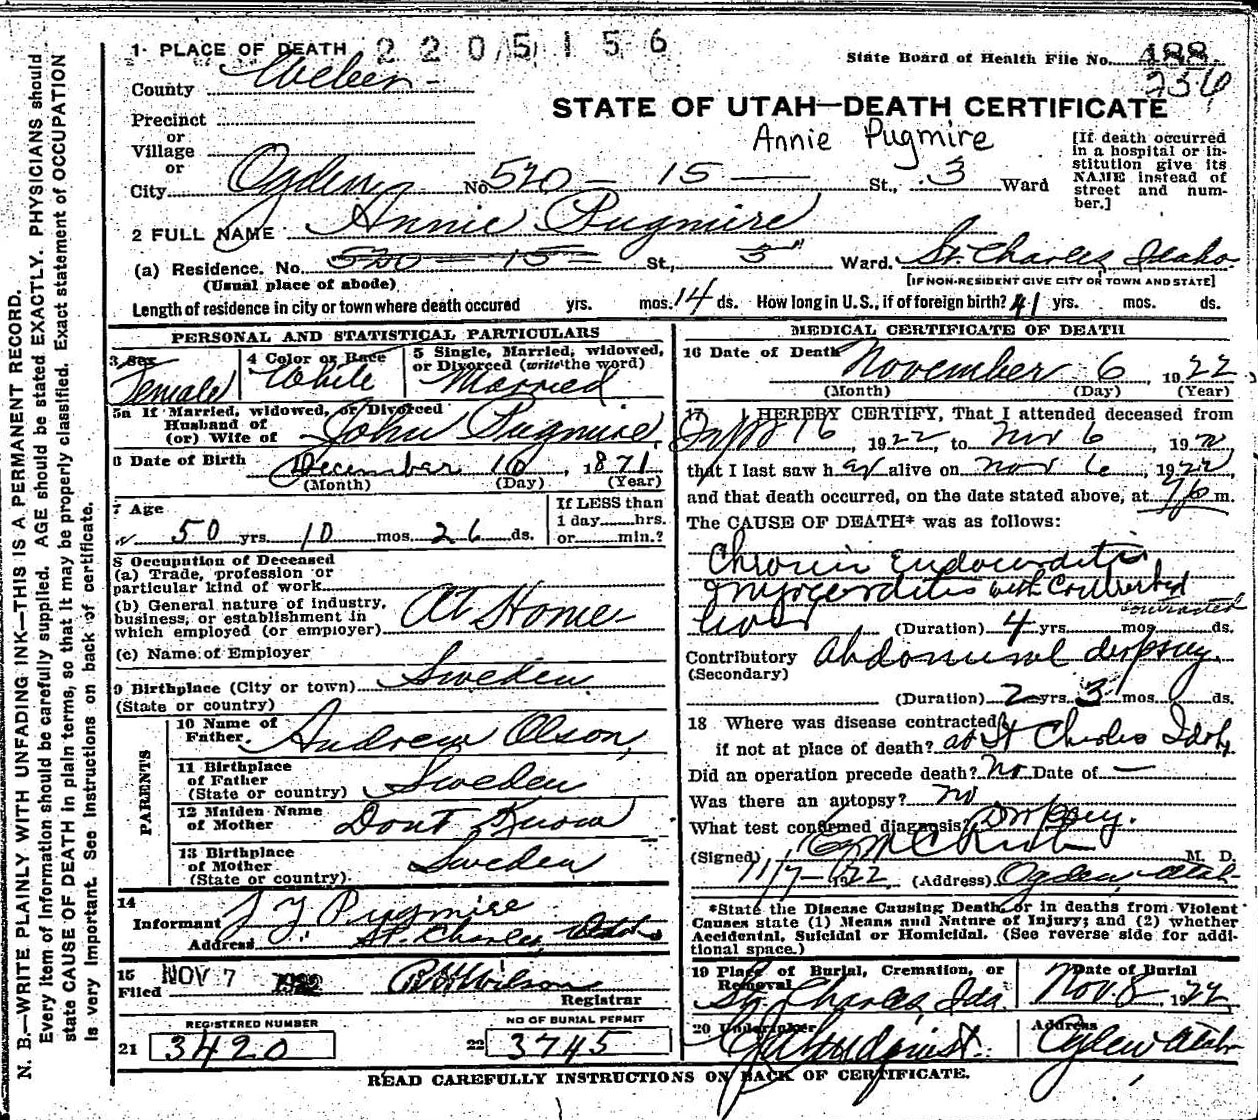 N. B.—WRITE PLAINLY WITH UNFADING INK—THIS IS A PERMANENT RECORD.
Every item of information should be carefully supplied. AGE should be stated EXACTLY. PHYSICIANS should
state CAUSE OF DEATH in plain terms, so that it may be properly classified. Exact statement of OCCUPATION
is very important. See instructions on back of certificate.
1. PLACE OF DEATH 2205156
State Board of Health File No. 488
236
County Weber
STATE OF UTAH—DEATH CERTIFICATE
Precinct
or
Village
or
Annie Pugmire
[If death occurred in a hospital or institution give its NAME instead of street and number.]
City Ogden No. 520 — 15 — St., 3 Ward
2 FULL NAME Annie Pugmire
(a) Residence. No. 520 — 15 — St., 3 Ward. St. Charles, Idaho
(Usual place of abode) [IF NON-RESIDENT GIVE CITY OR TOWN AND STATE]
Length of residence in city or town where death occured yrs. mos. 14 ds. How long in U.S., if of foreign birth? 41 yrs. mos. ds.
PERSONAL AND STATISTICAL PARTICULARS
3 Sex Female
4 Color or Race White
5 Single, Married, widowed, or Divorced (write the word) Married
5a If Married, widowed, or Divorced
Husband of
(or) Wife of John Pugmire
6 Date of Birth December 10, 1871
(Month) (Day) (Year)
7 Age 50 yrs 10 mos. 26 ds.
If LESS than
1 day......hrs.
or......min.?
8 Occupation of Deceased
(a) Trade, profession or
particular kind of work
(b) General nature of industry,
business, or establishment in
which employed (or employer) At Home
(c) Name of Employer
9 Birthplace (City or town) Sweden
(State or country)
PARENTS
10 Name of
Father. Andrew Olson,
11 Birthplace
of Father Sweden
(State or country)
12 Maiden Name
of Mother Dont Know
13 Birthplace
of Mother Sweden
(State or country).
14
Informant J. Y. Pugmire
Address St. Charles, Idaho
15
Filed NOV 7 1922 Wilson
Registrar
REGISTERED NUMBER
21 3420
NO OF BURIAL PERMIT
22 3745
MEDICAL CERTIFICATE OF DEATH
16 Date of Death November 6 1922
(Month) (Day) (Year)
17 I HEREBY CERTIFY, That I attended deceased from
16, 1922, to Nov 6, 19
that I last saw her alive on Nov 6, 1922,
and that death occurred, on the date stated above, at m.
The CAUSE OF DEATH* was as follows:
Chronic Endocarditis
Myocarditis with
contracted
liver (Duration) 4 yrs. mos. ds.
Contributory Abdominal dropsy.
(Secondary)
(Duration) 2 yrs. 3 mos. ds.
18 Where was disease contracted
if not at place of death? at St Charles Idah
Did an operation precede death? No Date of —
Was there an autopsy? no
What test confirmed diagnosis? Dropsy.
(Signed) M. D.
11/7—1922 (Address) Ogden, Utah
*State the Disease Causing Death, or in deaths from Violent
Causes state (1) Means and Nature of Injury; and (2) whether
Accidental, Suicidal or Homicidal. (See reverse side for additional space.)
19 Place of Burial, Cremation, or
Removal St. Charles, Ida.
Date of Burial
Nov. 8 1922
20 Undertaker
Address
Ogden Utah
READ CAREFULLY INSTRUCTIONS ON BACK OF CERTIFICATE.